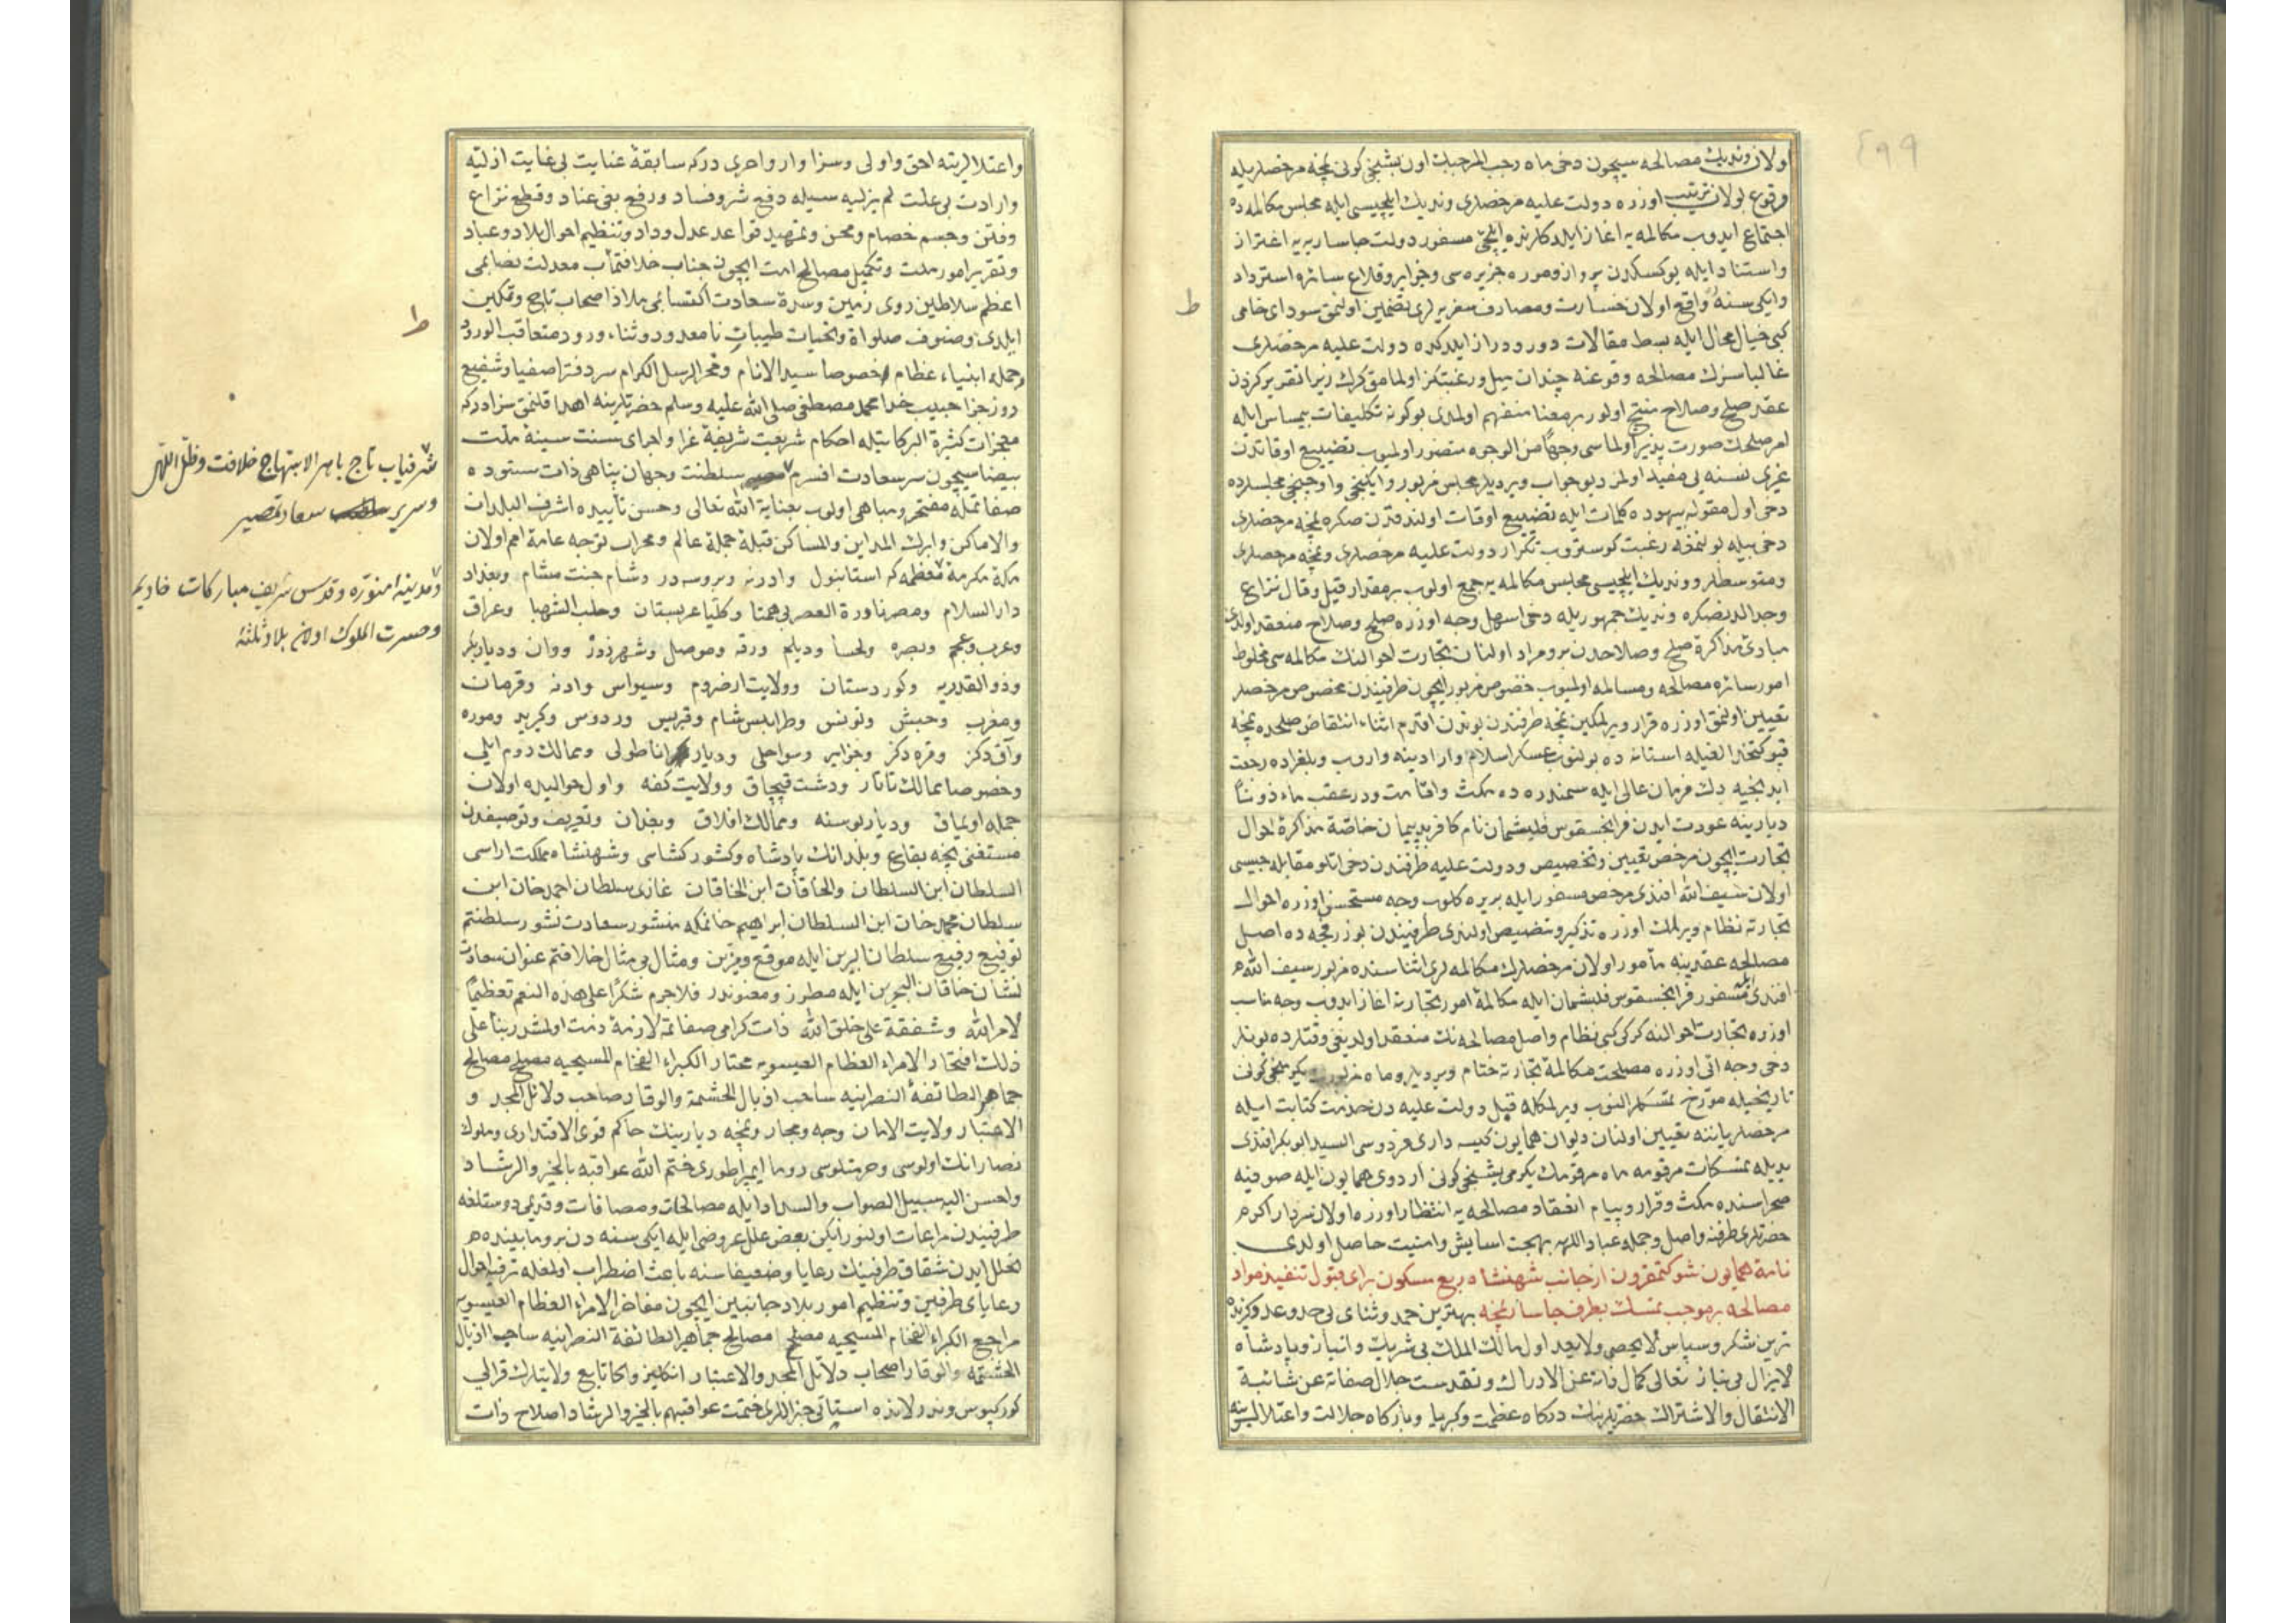 ٤٩٩
اولان وندیك مصالحه سیچون دخی ماه رجب المرجبك اون بشنجی کونی نمچه مرخصلریله
وقوع بولان ترتیب اوزره دولت علیه مرخصلری وندیك ایلچیسی ایله مجلس مکالمه ده
اجتماع ایدوب مکالمه یه اغاز ایلدکلرنده ایلچئ مسفور دولت جاساریه یه اغترار
واستناد ایله یوکسکدن پرواز وموره جزیره سی وجزایر وقلاع سائره استرداد
وایکی سنه واقع اولان خسارت ومصارف سفریه لری تضمین اولنمق سودای خامی
کبی خیال محال ایله بسط مقالات دور ودراز ایلدکده دولت علیه مرخصلری
غالبا سزك مصالحه وقوعنه چندان میل ورغبتکز اولمامق کرك زیرا تقریرکزدن
عقد صلح وصلاح منتج اولور بر معنا منفهم اولمدی بو کونه تکلیفات بیمساس ایله
امر صلحك صورت پذیر اولماسی وجهًا من الوجوه متصور اولمیوب تضییع اوقاتدن
غیری نسنه یی مفید اولمز دیو جواب ویردیلر مجلس مزبور وایکنجی واوچنجی مجلسلرده
دخی اول مقوله بیهوده کلمات ایله تضییع اوقات اولندقدن صکره نمچه مرخصلری
دخی بیله بولنمغه رغبت کوستروب تکرار دولت علیه مرخصلری ونمچه مرخصلری
ومتوسطلر ووندیك ایلچیسی مجلس مکالمه یه جمع اولوب بر مقدار قیل وقال نزاع
وجدالدنصکره وندیك جمهوریله دخی اسهل وجه اوزره صلح وصلاح منعقد اولدی
مبادئ مذاکرهٔ صلح وصلاحدن برو مراد اولنان تجارت احوالنك مکالمه سی مخلوط
امور سائره مصالحه ومسالمه اولمیوب خصوص مزبور ایچون طرفیندن مخصوص مرخصلر
تعیین اولنمق اوزره قرار ویرلمکین نمچه طرفندن بوندن اقدم اثناء انتقاض صلحده نمچه
قپو کتخدالغیله استانه ده بولنوب عسکر اسلام وارادینه واروب وبلغراده رجعت
ایدنجیه دك فرمان عالی ایله سمندره ده مکث واقامت ودر عقب ماء ذونًا
دیارینه عودت ایدن فرانچسقوس فلیشمان نام کافر بد پیمان خاصّة مذاکرهٔ احوال
تجارت ایچون مرخص تعیین وتخصیص ودولت علیه طرفندن دخی اناطو مقابله جیسی
اولان سیف الله افندی مرخص مسفور ایله بریره کلوب وجه مستحسن اوزره احوال
تجارته نظام ویرلمك اوزره تذکیر وتنصیص اولندی طرفیندن بوزرفجه ده اصل
مصالحه عقدینه مأمور اولان مرخصلرك مکالمه لری اثناسنده مزبور سیف الله
افندی مسفور فرانچسقوس فلیشمان ایله مکالمهٔ امور تجارته اغاز ایدوب وجه مناسب
اوزره تجارت احوالنه کرکی کبی نظام واصل مصالحه نك منعقد اولدیغی وقتلرده بونلر
دخی وجه اتی اوزره مصلحت مکالمهٔ تجارته ختام ویردیلر وماه مزبورك یکرمنجی کونی
تاریخیله مؤرخ تمسکلر النوب ویرلمکله قبل دولت علیه دن خدمت کتابت ایله
مرخصلر یاننه تعیین اولنان دیوان همایون کیسه داری فردوسی السید ابو بکر افندی
یدیله تمسکات مرقومه ماه مرقومك یکرمی بشنجی کونی اردوی همایون ایله صوفیه
صحراسنده مکث وقرار وپیام انعقاد مصالحه یه انتظار اوزره اولان سردار اکرم
حضرتلری طرفنه واصل وجمله عباد اللهه بهجت اسایش وامنیت حاصل اولدی
نامهٔ همایون شوکتمقرون از جانب شهنشاه ربع مسکون برای قبول تنفیذ مواد
مصالحه بر موجب تمسك بطرف جاسار نمچه بهترین حمد وثنای بی حد وعد وکزیده
ترین شکر وسپاس لا یحصی ولا یعد اول مالك الملك بی شریك وانباز وپادشاه
لا یزال بی نیاز تعالی کمال ذاته عن الادراك وتقدست جلال صفاته عن شائبة
الانتقال والاشتراك حضرتلرینك درکاه عظمت وکبریا وبارکاه جلالت واعتلالرینه
ط
واعتلالرینه احق واولی وسزاوار واحری درکه سابقهٔ عنایت بی غایت ازلیه
وارادت بی علت لم یزلیه سیله دفع شر وفساد ورفع بغی عناد وقطع نزاع
وفتن وحسم خصام ومحن وتمهید قواعد عدل وداد وتنظیم احوال بلاد وعباد
وتقریر امور ملت وتکمیل مصالح امت ایچون جناب خلافتمآب معدلت نصابمی
اعظم سلاطین روی زمین وسدهٔ سعادت اکتسابمی ملاذ اصحاب تاج وتمکین
ایلدی وصنوف صلواة وتحیات طیبات نا معدود وثناء ورود متعاقب الورود
جمله انبیاء عظام خصوصا سید الانام وفخر الرسل الکرام سر دفتر اصفیا وشفیع
روز جزا حبیب خدا محمد مصطفی صلی الله علیه وسلم حضرتلرینه اهدا قلنمق سزادرکه
معجزات کثیرة البرکاتیله احکام شریعت شریفهٔ غرا واجرای سنت سنیهٔ ملت
بیضا سیچون سر سعادت افسرم سلطنت وجهان پناهی ذات ستوده
صفاتمله مفتخر ومباهی اولوب بعنایة الله تعالی وحسن تأییده اشرف البلدان
والاماکن وابرك المداین والمساکن قبلهٔ جملهٔ عالم ومحراب توجه عامهٔ امم اولان
مکهٔ مکرمهٔ معظمه که استانبول وادرنه وبروسه در وشام جنت مشام وبغداد
دار السلام ومصر نادرة العصر بی همتا وکلّیا عربستان وحلب الشهبا وعراق
وعرب وعجم وبصره ولحسا ودیلم ورقه وموصل وشهرزور ووان ودیاربکر
وذو القدریه وکوردستان وولایت ارضروم وسیواس وادنه وقرمان
ومغرب وحبش وتونس وطرابلس شام وقبریس وردوس وکرید وموره
وآق دکز وقره دکز وجزایر وسواحلی ودیار اناطولی وممالك روم ایلی
وخصوصا ممالك تاتار ودشت قپچاق وولایت کفه واول حوالیده اولان
جمله اویماق ودیار بوسنه وممالك افلاق وبغدان وتعریف وتوصیفدن
مستغنی نچه بقاع وبلدانك پادشاه وکشورکشاسی وشهنشاه مملکت اراسی
السلطان ابن السلطان والخاقان ابن الخاقان غازی سلطان احمد خان ابن
سلطان محمد خان ابن السلطان ابراهیم خانمکه منشور سعادت نشور سلطنتم
توقیع رفیع سلطان البرین ایله موقع ومزین ومثال بی مثال خلافتم عنوان سعادت
نشان خاقان البحرین ایله مطرز ومعنوندر فلا جرم شکرًا علی هذه النعم تعظیمًا
لامر الله وشفقة علی خلق الله ذات کرامی صفاتمه لازمهٔ ذمت اولمشدر بناء علی
ذلك افتخار الامراء العظام العیسویه مختار الکبراء الفخام المسیحیه مصلح مصالح
جماهیر الطائفة النصرانیه ساحب اذیال الحشمة والوقار صاحب دلائل المجد و
الاعتبار ولایت الامان وجه ومجار ونمچه دیارینك حاکم قوی الاقتداری وملوك
نصارانك اولوسی وحرمتلوسی روما ایمپراطوری ختم الله عواقبه بالخیر والرشاد
واحسن الیه سبیل الصواب والسداد ایله مصالحات ومصافات وقدیمی دوستلغه
طرفیندن مراعات اولنور ایکن بعض علل عروضی ایله ایکی سنه دن برو مابینده
تخلل ایدن شقاق طرفینك رعایا وضعیفاسنه باعث اضطراب اولمغله ترفیه احوال
رعایای طرفین وتنظیم امور بلاد جانبین ایچون مفاخر الامراء العظام العیسویه
مراجع الکبراء الفخام المسیحیه مصلح مصالح جماهیر الطائفة النصرانیه ساحب الاذیال
الحشمه والوقار اصحاب دلائل المجد والاعتبار انکلیز واکا تابع ولایتلرك قرالی
کورکیوس وندرلانده استاتی جنراللری ختمت عواقبهم بالخیر والرشاد اصلاح ذات
ط
شرفیاب تاج باهر الابتهاج خلافت وظل اللهی
وسریر سعادتمصیر
ومدینهٔ منوره وقدس شریف مبارکات خادیم
وحسرت الملوك اولان بلاد ثلثهٔ